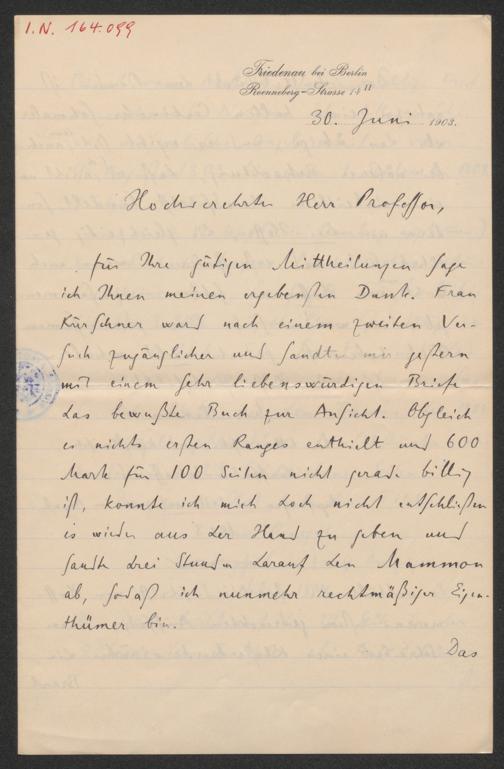 I.N. 164.099
Friedenau bei Berlin
Roenneberg-Strasse 14 II
30. Juni 1903.
Hochverehrter Herr Professor,
für Ihre gütigen Mittheilungen sage
ich Ihnen meinen ergebensten Dank. Frau
Kürschner ward nach einem zweiten Ver-
such zugänglicher und sandte mir gestern
mit einem sehr liebenswürdigen Briefe
das bewußte Buch zur Ansicht. Obgleich
es nichts ersten Ranges enthielt und 600
Mark für 100 Seiten nicht gerade billig
ist, konnte ich mich doch nicht entschließen
es wieder aus der Hand zu geben und
sandte drei Stunden darauf den Mammon
ab, sodaß ich nunmehr rechtmäßiger Eigen-
thümer bin.
Das